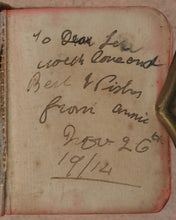 To Dear
with love and
Best Wishes
from Annie
Nov 26th
19/14